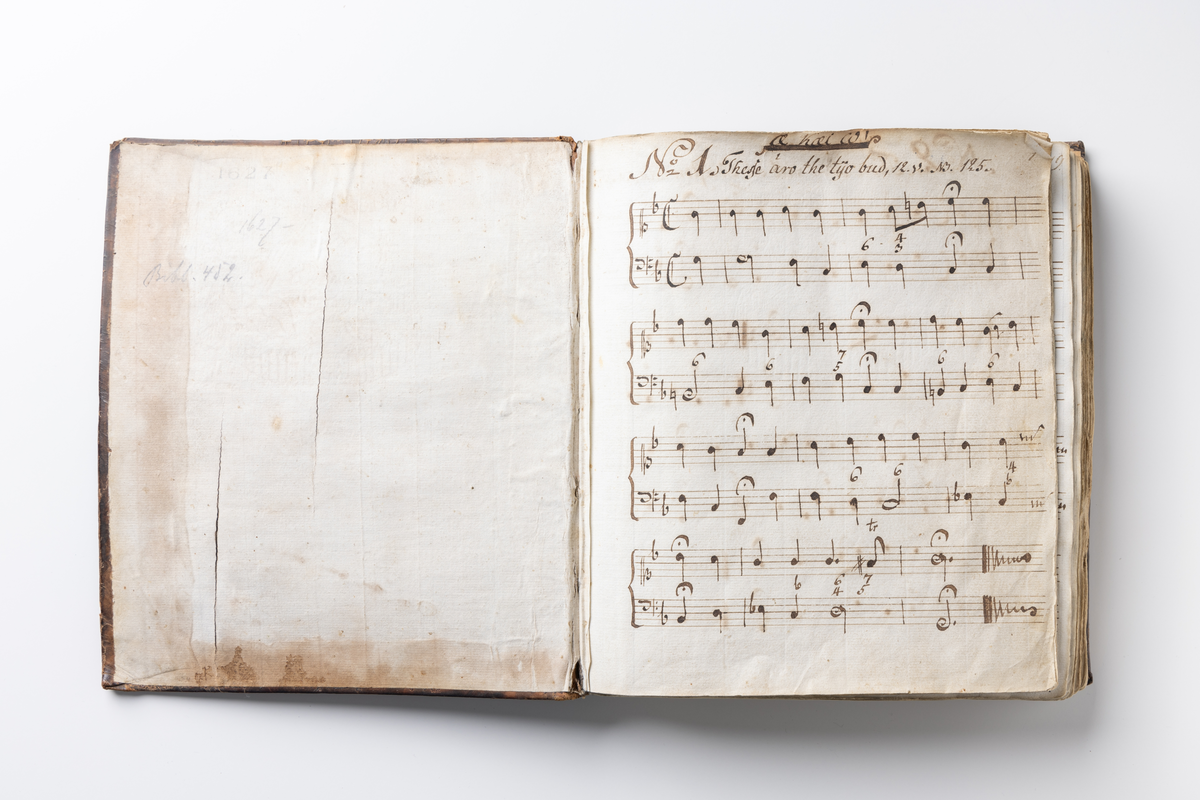 1627
1627-
Bibl. 452.
Nº 1. Thesse äro the tijo bud, R. V. N. 125.
6 4
3
6 6 7 6 6
5
6 6 4
6
tr
6 6 7
4 5